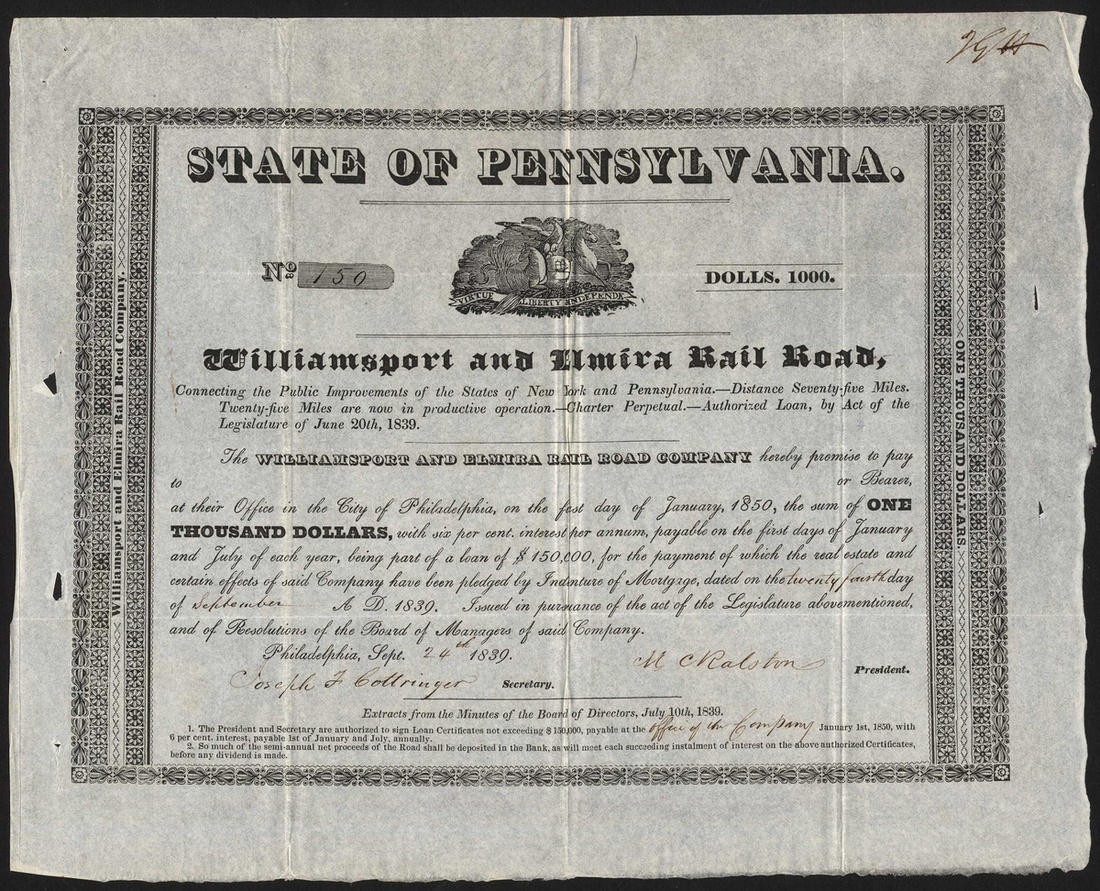 STATE OF PENNSYLVANIA.
No: 150
DOLLS. 1000.
VIRTUE LIBERTY INDEPENDE
Williamsport and Elmira Rail Road,
Connecting the Public Improvements of the States of New York and Pennsylvania.—Distance Seventy-five Miles.
Twenty-five Miles are now in productive operation.—Charter Perpetual.—Authorized Loan, by Act of the
Legislature of June 20th, 1839.
The WILLIAMSPORT AND ELMIRA RAIL ROAD COMPANY hereby promise to pay
to or Bearer,
at their Office in the City of Philadelphia, on the first day of January, 1850, the sum of ONE
THOUSAND DOLLARS, with six per cent. interest per annum, payable on the first days of January
and July of each year, being part of a loan of $150,000, for the payment of which the real estate and
certain effects of said Company have been pledged by Indenture of Mortgage, dated on the twenty fourth day
of September A D. 1839. Issued in pursuance of the act of the Legislature abovementioned,
and of Resolutions of the Board of Managers of said Company.
Philadelphia, Sept. 24th 1839.
M C Ralston President.
Joseph F Cottringer Secretary.
Extracts from the Minutes of the Board of Directors, July 10th, 1839.
1. The President and Secretary are authorized to sign Loan Certificates not exceeding $150,000, payable at the office of the Company January 1st, 1850, with
6 per cent. interest, payable 1st of January and July, annually.
2. So much of the semi-annual net proceeds of the Road shall be deposited in the Bank, as will meet each succeeding instalment of interest on the above authorized Certificates,
before any dividend is made.
Williamsport and Elmira Rail Road Company.
ONE THOUSAND DOLLARS.